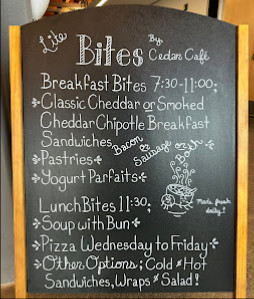 Lite Bites By Cedars Café
Breakfast Bites 7:30-11:00;
Classic Cheddar or Smoked
Cheddar Chipotle Breakfast
Sandwiches Bacon & Sausage Both
Pastries
Yogurt Parfaits
Made fresh
daily!
Lunch Bites 11:30;
Soup with Bun
Pizza Wednesday to Friday
Other Options; Cold & Hot
Sandwiches, Wraps & Salad!